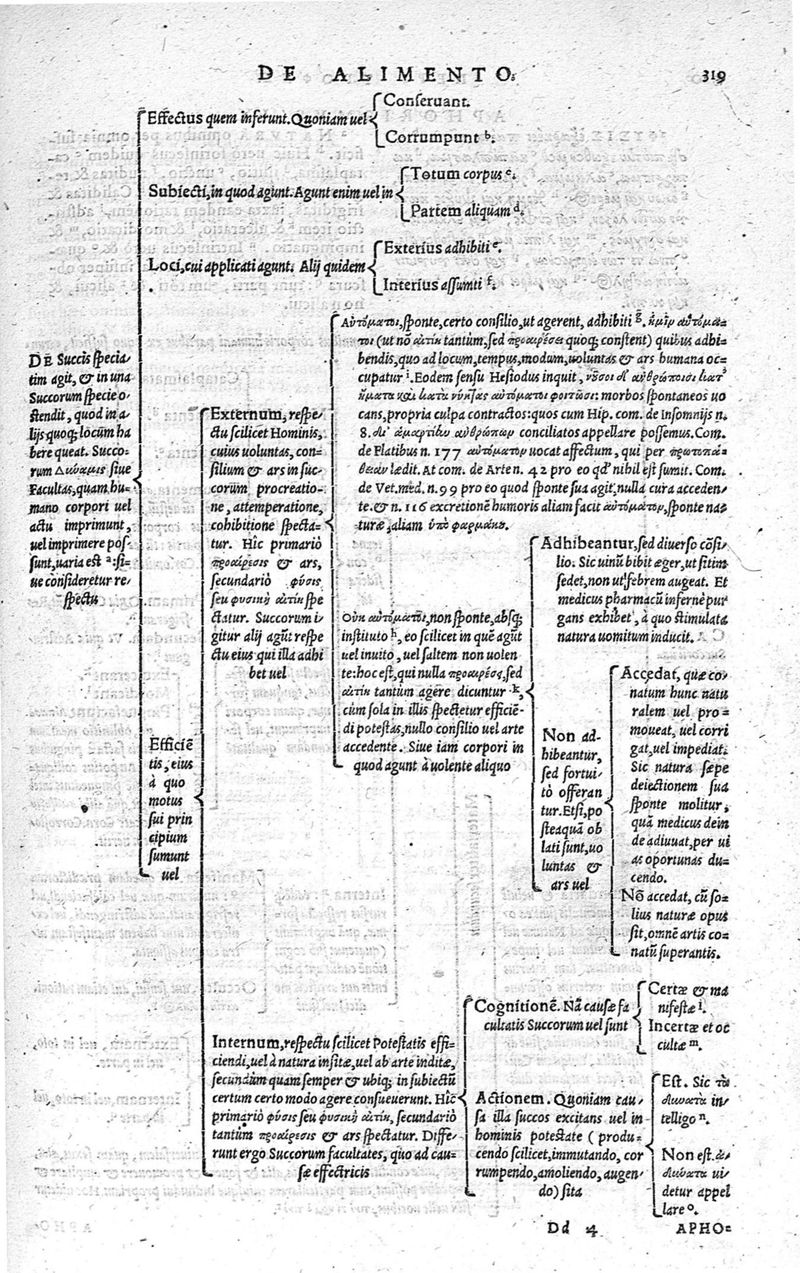 DE ALIMENTO.
319
DE Succis specia
tim agit, & in una
Succorum specie o-
stendit, quod in a-
lijs quoq; locum ha
bere queat. Succo-
rum Δυναμις siue
Facultas, quam hu-
mano corpori uel
actu imprimunt,
uel imprimere pos-
sunt, uaria est ᵃ: si-
ue consideretur re-
spectu
Effectus quem inferunt. Quoniam uel
Conseruant.
Corrumpunt ᵇ.
Subiecti, in quod agunt. Agunt enim uel in
Totum corpus ᶜ.
Partem aliquam ᵈ.
Loci, cui applicati agunt. Alij quidem
Exterius adhibiti ᵉ.
Interius assumti ᶠ.
Efficiẽ
tis, eius
à quo
motus
sui prin
cipium
sumunt
uel
Externum, respe-
ctu scilicet Hominis,
cuius uoluntas, con-
silium & ars in suc-
corum procreatio-
ne, attemperatione,
cohibitione specta-
tur. Hîc primariò
προαίρεσις & ars,
secundariò φύσις
seu φυσικὴ αἰτίη spe
ctatur. Succorum i-
gitur alij agũt respe
ctu eius qui illa adhi
bet uel
Αὐτόματοι, sponte, certo consilio, ut agerent, adhibiti ᵍ.
ti (ut nõ αἰτίη tantùm, sed προαιρέσει quoq; constent) quibus adhi-
bendis, quo ad locum, tempus, modum, uoluntas & ars humana oc-
cupatur ⁱ. Eodem sensu Hesiodus inquit, νοῦσοι δ' ἀνθρώποισι
αὐτόματοι φοιτῶσι: morbos spontaneos uo
cans, propria culpa contractos: quos cum Hip. com. de Insomnijs n.
8. δι' conciliatos appellare possemus. Com.
de Flatibus n. 177 αὐτόματον uocat affectum, qui per
lædit. At com. de Arte n. 42 pro eo qđ nihil est sumit. Com.
de Vet. med. n. 99 pro eo quod sponte sua agit, nulla cura acceden-
te. & n. 116 excretionẽ humoris aliam facit αὐτόματον, sponte na-
turæ, aliam ὑπὸ φαρμάκου.
Οὐκ αὐτόματοι, non sponte, absq;
instituto ʰ, eo scilicet in quẽ agũt
uel inuito, uel saltem non uolen
te: hoc est, qui nulla προαιρέσει, sed
αἰτίη tantùm agere dicuntur ᵏ,
cùm sola in illis spectetur efficiẽ-
di potestas, nullo consilio uel arte
accedente. Siue iam corpori in
quod agunt à uolente aliquo
Adhibeantur, sed diuerso cõsi-
lio. Sic uinũ bibit æger, ut sitim
sedet, non ut febrem augeat. Et
medicus pharmacũ infernè pur
gans exhibet, à quo stimulata
natura uomitum inducit.
Non ad-
hibeantur,
sed fortui-
tò offeran
tur. Etsi, po
steaquã ob
lati sunt, uo
luntas &
ars uel
Accedat, quæ co-
natum hunc natu
ralem uel pro-
moueat, uel corri
gat, uel impediat.
Sic natura sæpe
deiectionem sua
sponte molitur,
quã medicus dein
de adiuuat, per ui
as oportunas du-
cendo.
Nõ accedat, cũ so-
lius naturæ opus
sit, omnẽ artis co-
natũ superantis.
Internum, respectu scilicet potestatis effi-
ciendi, uel à natura insitæ, uel ab arte inditæ,
secundùm quam semper & ubiq; in subiectũ
certum certo modo agere consueuerunt. Hîc
primariò φύσις seu φυσικὴ αἰτίη, secundariò
tantùm προαίρεσις & ars spectatur. Diffe-
runt ergo Succorum facultates, quo ad cau-
sæ effectricis
Cognitionẽ. Nã causæ fa
cultatis Succorum uel sunt
Certæ & ma
nifestæ ˡ.
Incertæ et oc
cultæ ᵐ.
Actionem. Quoniam cau-
sa illa succos excitans uel in
hominis potestate (produ-
cendo scilicet, immutando, cor
rumpendo, amoliendo, augen-
do) sita
Est. Sic τὰ
δυνατὰ in-
telligo ⁿ.
Non est. ἀ-
δυνατα ui-
detur appel
lare ᵒ.
Dd 4
APHO-